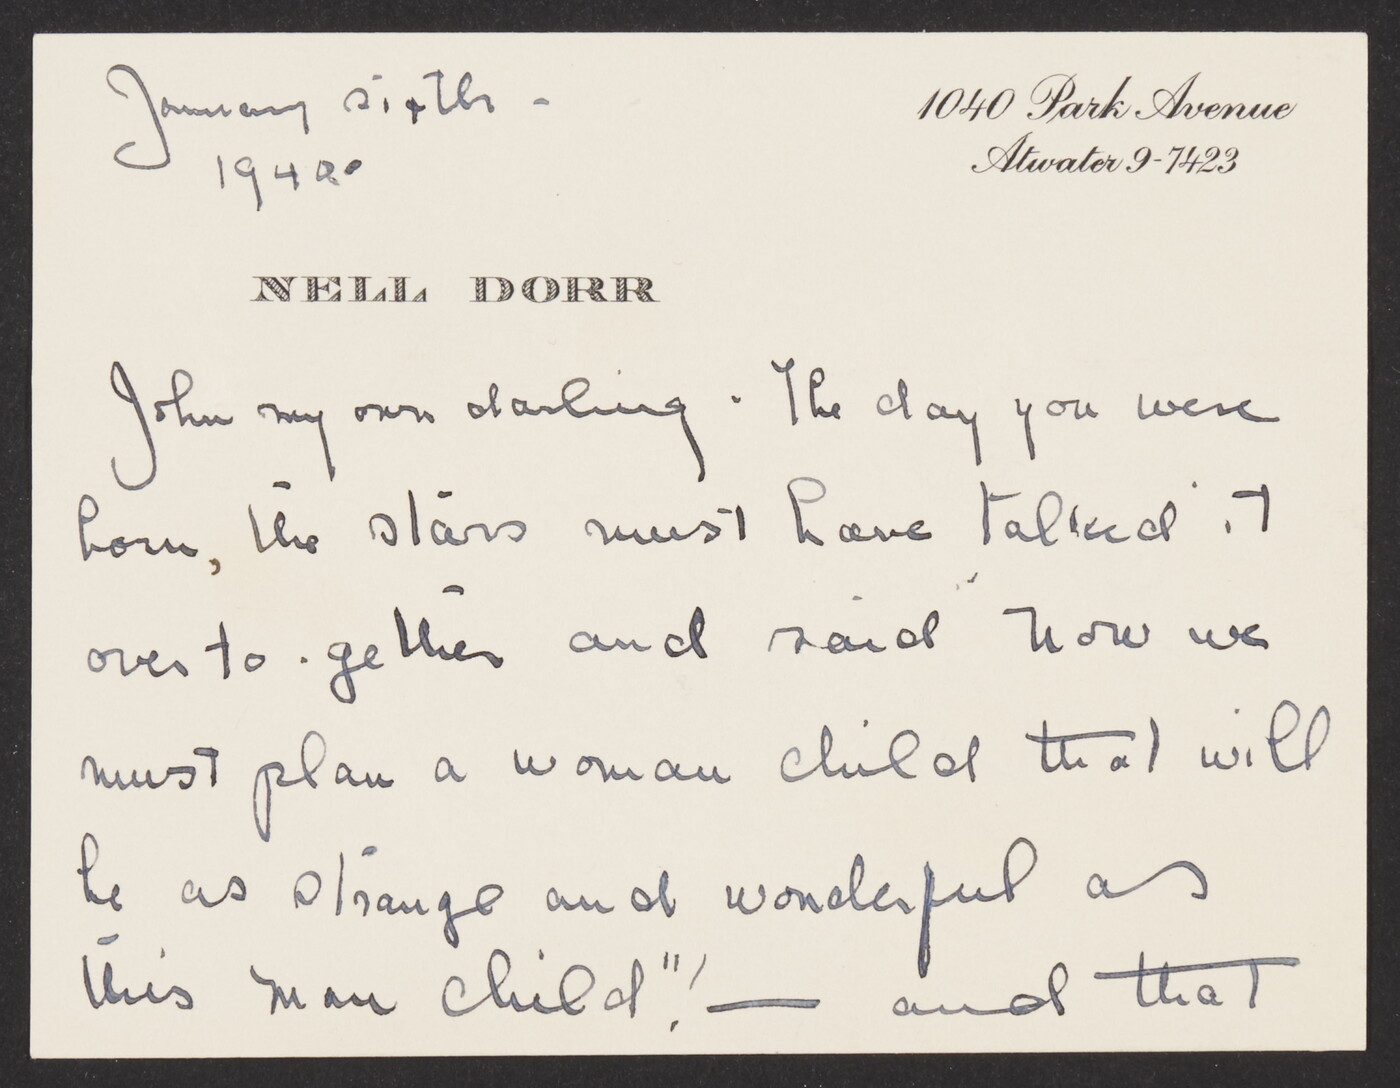 January sixth -
1942.
1040 Park Avenue
Atwater 9-7423
NELL DORR
John my own darling. The day you were
born, the stars must have talked it
over to.gether and said now we
must plan a woman child that will
be as strange and wonderful as
this man child"! — and that